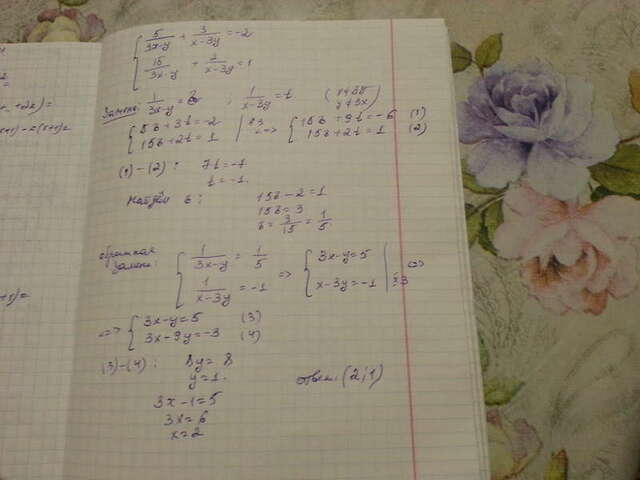 { 5/(3x-y) + 3/(x-3y) = -2
{ 15/(3x-y) + 2/(x-3y) = 1
Замена: 1/(3x-y) = в ; 1/(x-3y) = t
{ 5в + 3t = -2 | ·3 <=> { 15в + 9t = -6 (1)
{ 15в + 2t = 1 { 15в + 2t = 1 (2)
(1) - (2): 7t = -7
t = -1.
Найдём в: 15в - 2 = 1
15в = 3
в = 3/15 = 1/5.
обратная замена: { 1/(3x-y) = 1/5 => { 3x-y = 5
{ 1/(x-3y) = -1 { x-3y = -1 | ·3 <=>
<=> { 3x-y = 5 (3)
{ 3x-9y = -3 (4)
(3) - (4): 8y = 8
y = 1.
3x - 1 = 5
3x = 6
x = 2
ответ: (2;1)